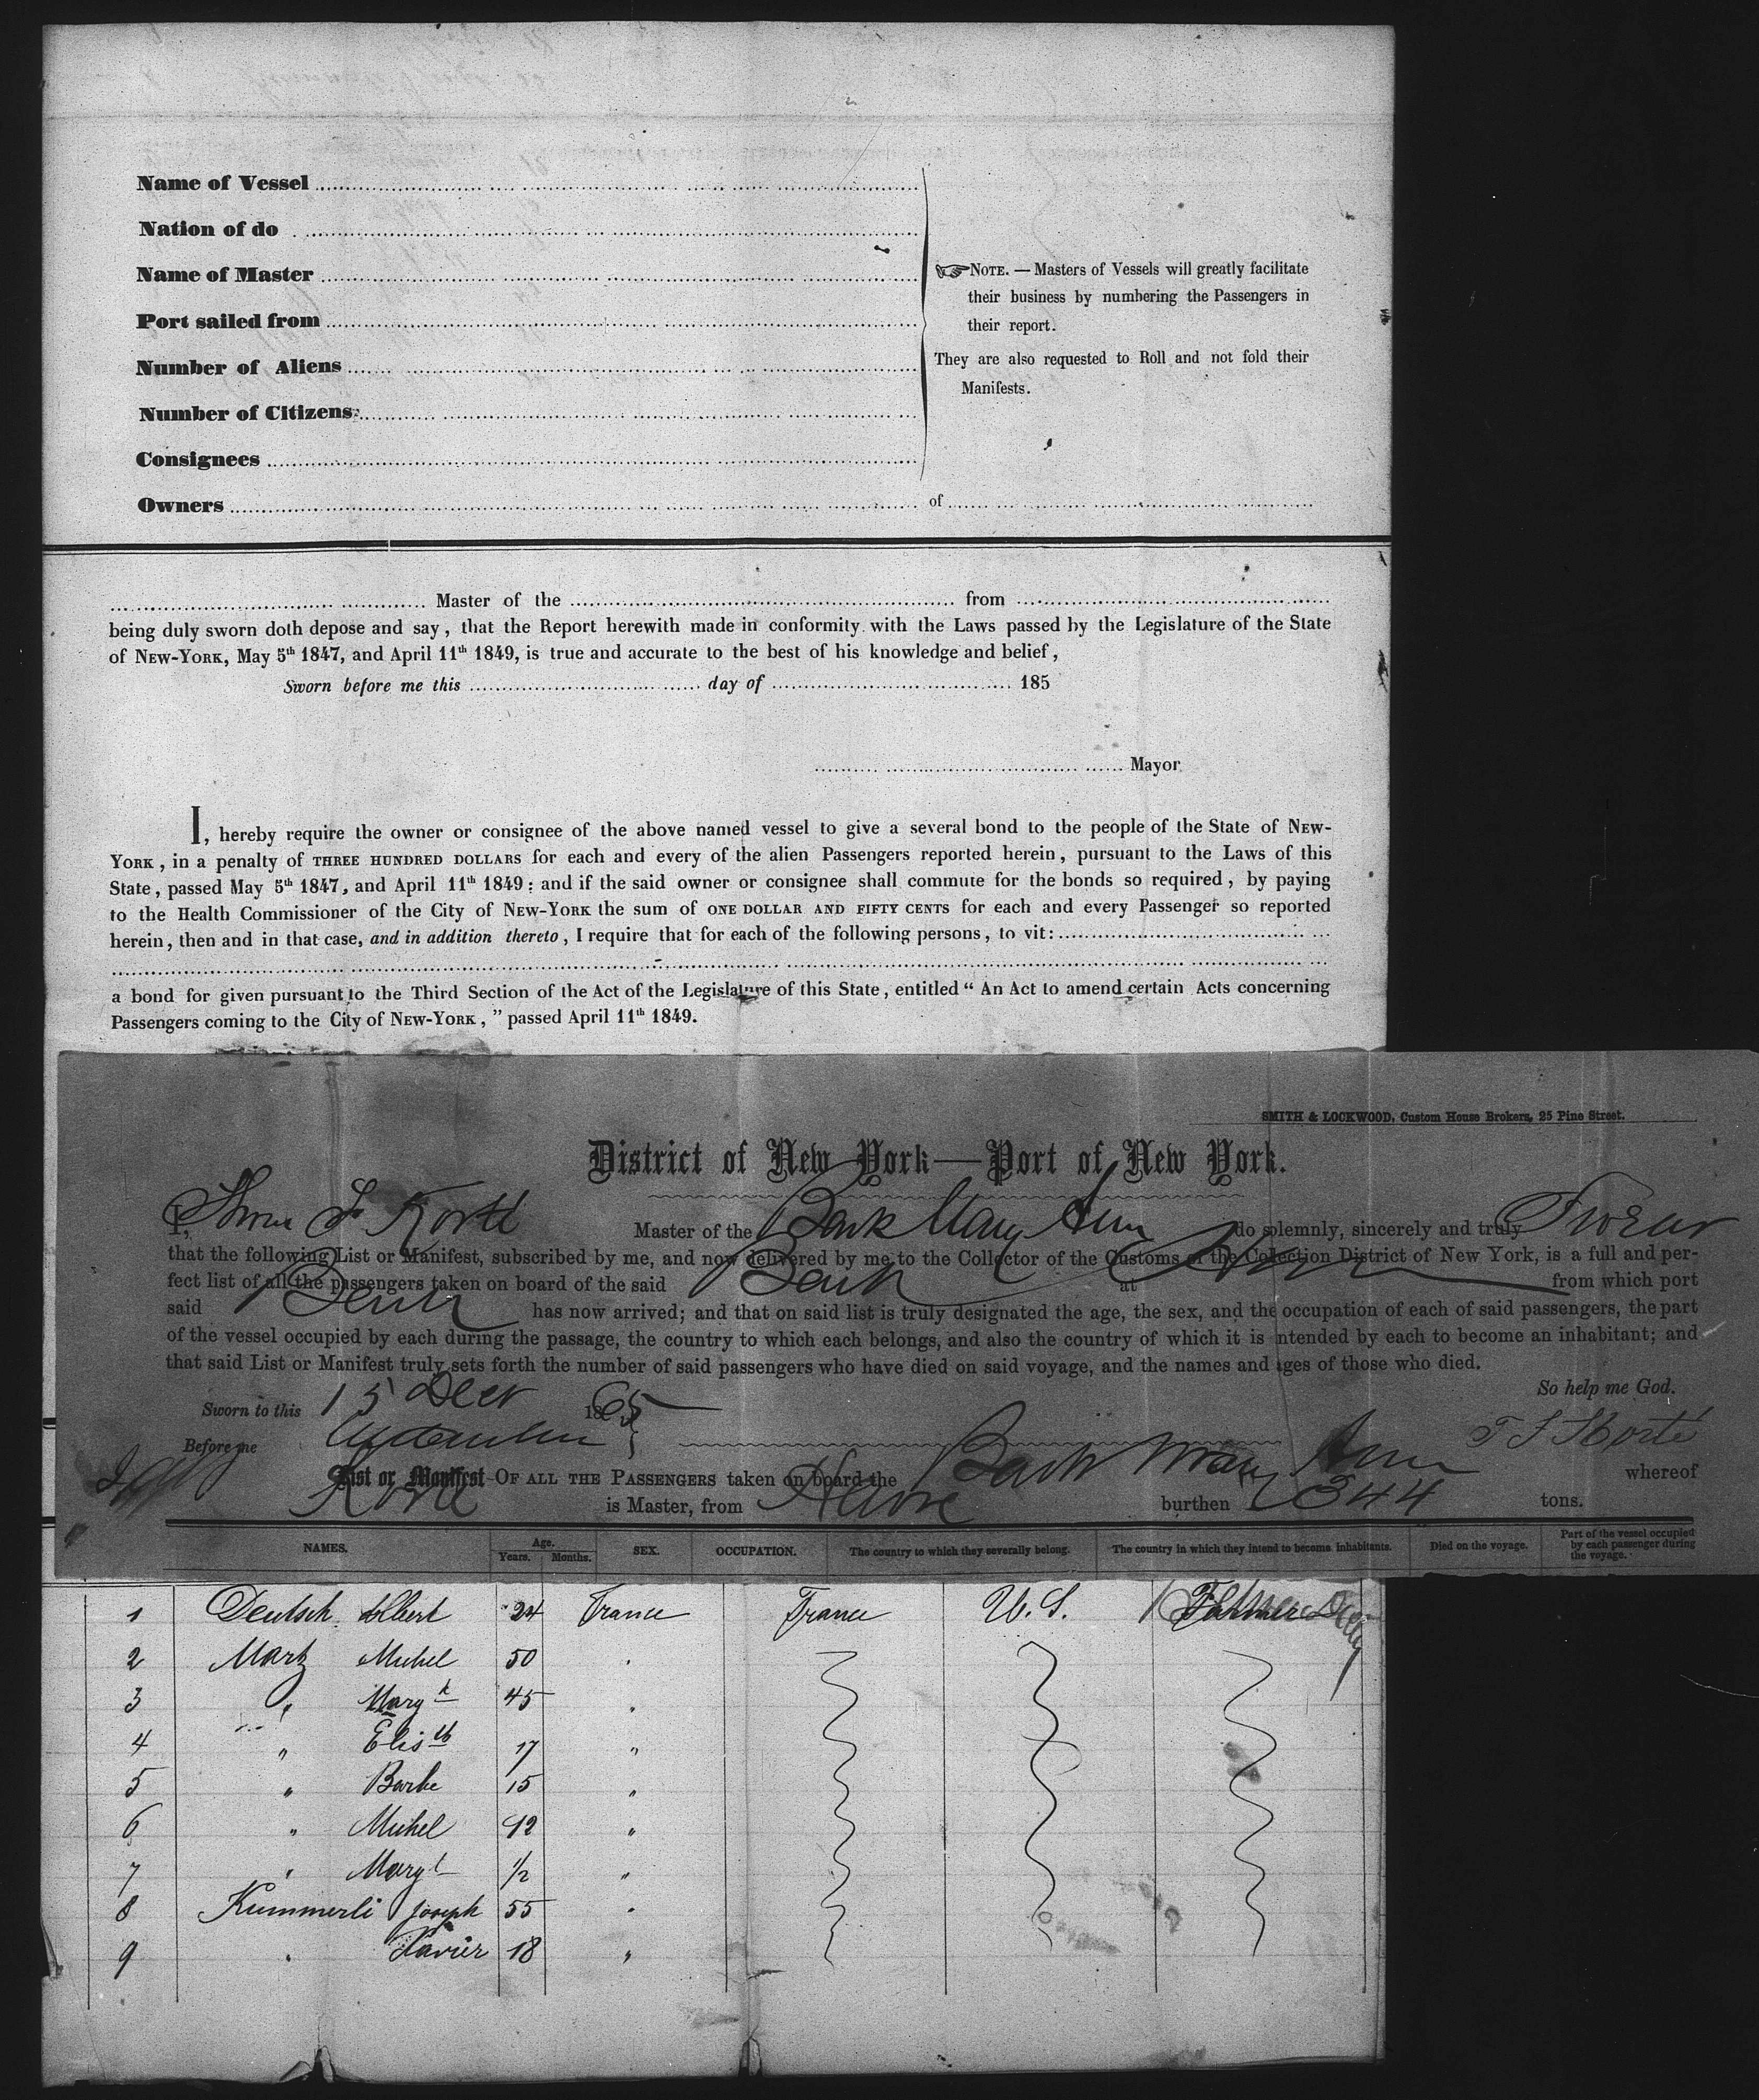 Name of Vessel
Nation of do
Name of Master
Port sailed from
Number of Aliens
Number of Citizens
Consignees
Owners of
NOTE. — Masters of Vessels will greatly facilitate
their business by numbering the Passengers in
their report.
They are also requested to Roll and not fold their
Manifests.
Master of the from
being duly sworn doth depose and say, that the Report herewith made in conformity with the Laws passed by the Legislature of the State
of NEW-YORK, May 5th 1847, and April 11th 1849, is true and accurate to the best of his knowledge and belief,
Sworn before me this day of 185
Mayor
I, hereby require the owner or consignee of the above named vessel to give a several bond to the people of the State of NEW-
YORK, in a penalty of THREE HUNDRED DOLLARS for each and every of the alien Passengers reported herein, pursuant to the Laws of this
State, passed May 5th 1847, and April 11th 1849: and if the said owner or consignee shall commute for the bonds so required, by paying
to the Health Commissioner of the City of NEW-YORK the sum of ONE DOLLAR AND FIFTY CENTS for each and every Passenger so reported
herein, then and in that case, and in addition thereto, I require that for each of the following persons, to vit:
a bond for given pursuant to the Third Section of the Act of the Legislature of this State, entitled “ An Act to amend certain Acts concerning
Passengers coming to the City of NEW-YORK, ” passed April 11th 1849.
SMITH & LOCKWOOD, Custom House Brokers, 25 Pine Street.
District of New York—Port of New York.
I, Master of the Bark Mary Ann do solemnly, sincerely and truly Swear
that the following List or Manifest, subscribed by me, and now delivered by me to the Collector of the Customs of the Collection District of New York, is a full and per-
fect list of all the passengers taken on board of the said Bark at from which port
said Bark has now arrived; and that on said list is truly designated the age, the sex, and the occupation of each of said passengers, the part
of the vessel occupied by each during the passage, the country to which each belongs, and also the country of which it is intended by each to become an inhabitant; and
that said List or Manifest truly sets forth the number of said passengers who have died on said voyage, and the names and ages of those who died.
So help me God.
Sworn to this 15 Decr 1865
Before me
List or Manifest OF ALL THE PASSENGERS taken on board the Bark Mary Ann whereof
is Master, from Havre burthen 344 tons.
NAMES. Age. Years. Months. SEX. OCCUPATION. The country to which they severally belong. The country in which they intend to become inhabitants. Died on the voyage. Part of the vessel occupied by each passenger during the voyage.
1 Deutsch Albert 24 France France U. S. Farmer
2 Martz Michel 50
3 " Margt 45 "
4 " Elisth 17 "
5 " Barbe 15 "
6 " Michel 12 "
7 " Margt 1/2 "
8 Kummerli Joseph 55 "
9 " Xavier 18 "